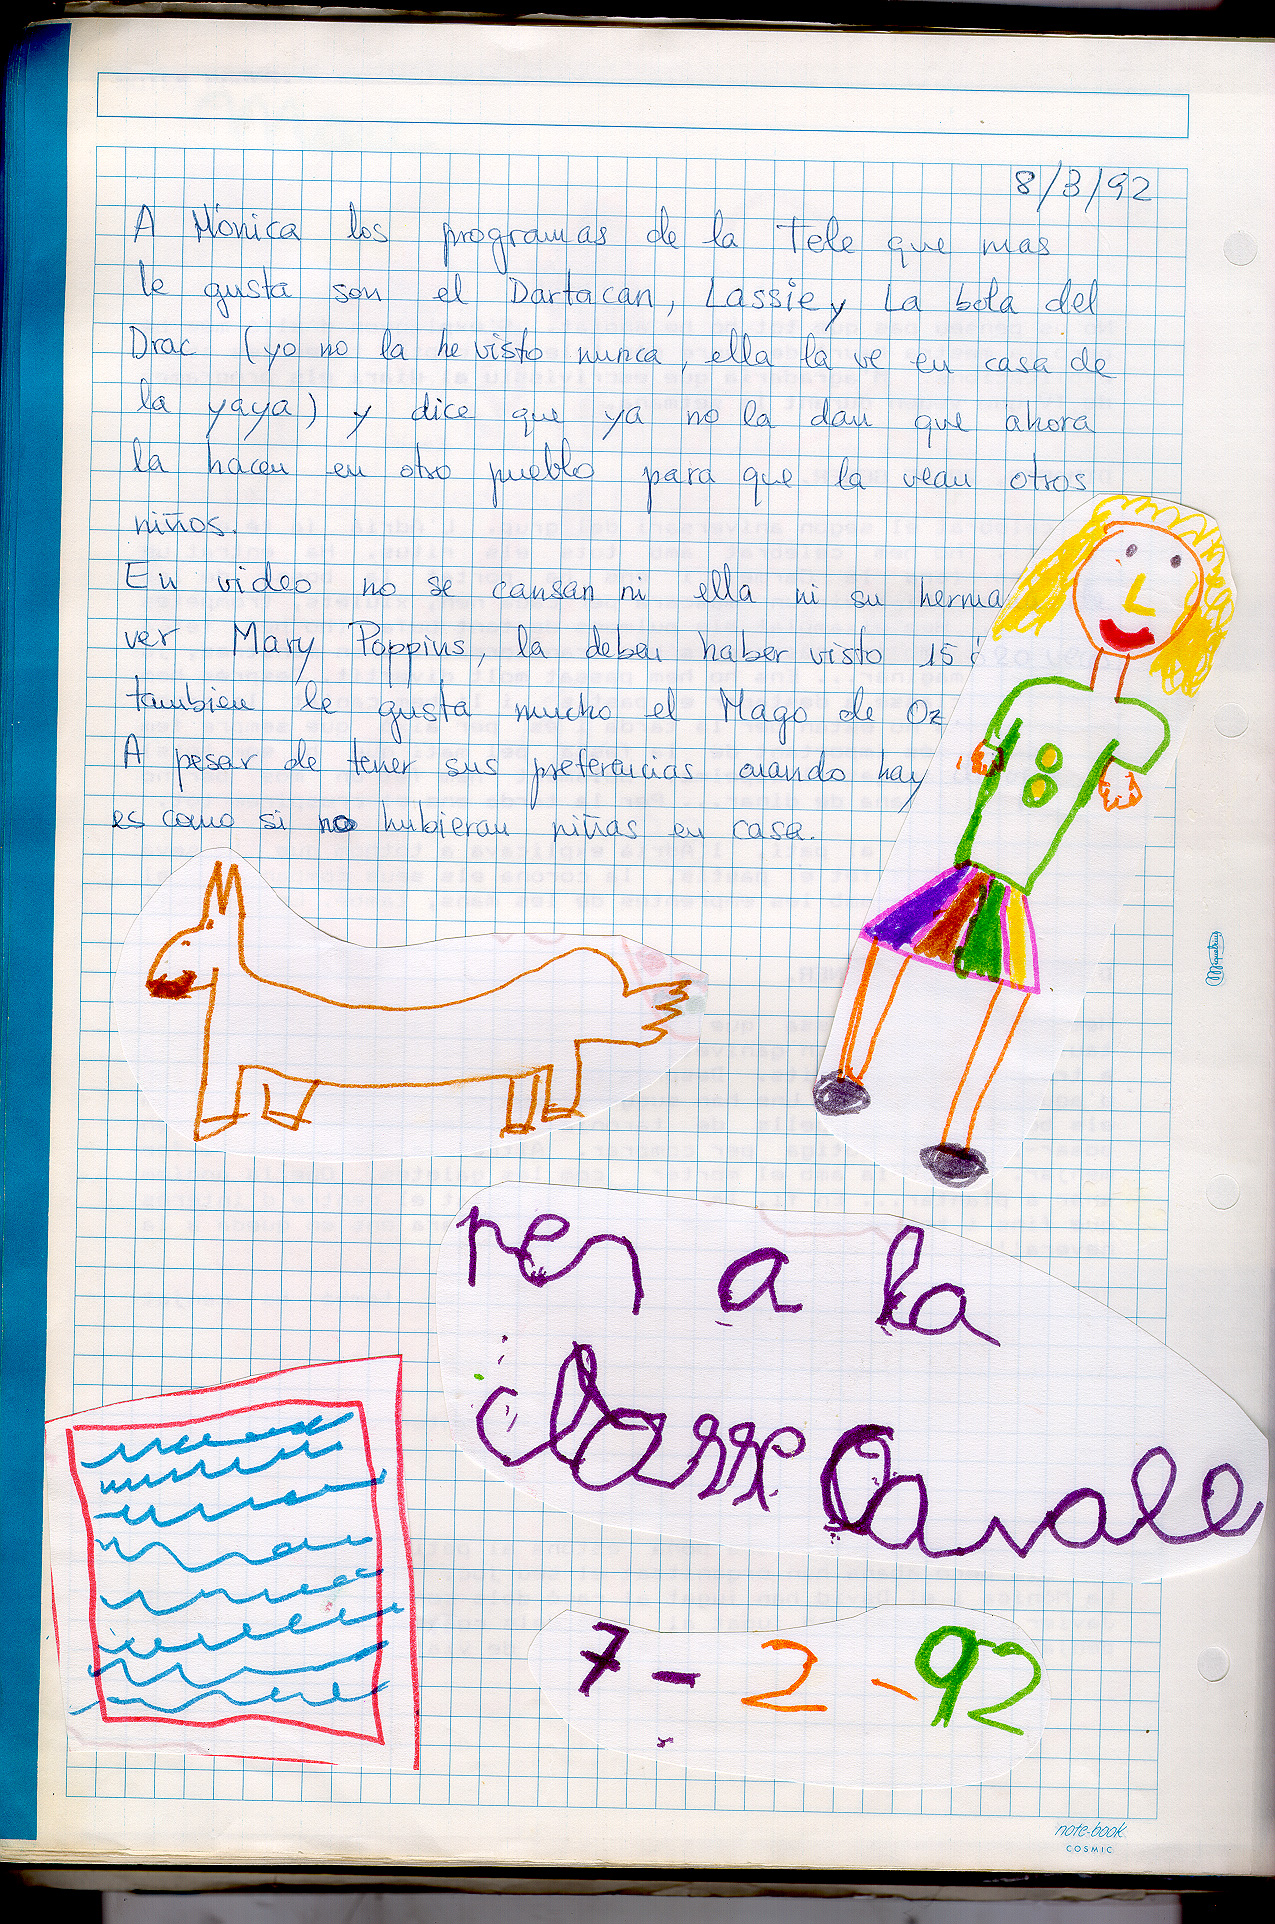 8/3/92
A Mónica los programas de la Tele que mas
le gusta son el Dartacan, Lassie y La bola del
Drac (yo no la he visto nunca, ella la ve en casa de
la yaya) y dice que ya no la dan que ahora
la hacen en otro pueblo para que la vean otros
niños.
En video no se cansan ni ella ni su herma
ver Mary Poppins, la deben haber visto 15 ó
tambien le gusta mucho el Mago de Oz
A pesar de tener sus preferencias cuando hay
es como si no hubieran niñas en casa.
per a la
classe
7-2-92
note-book
COSMIC